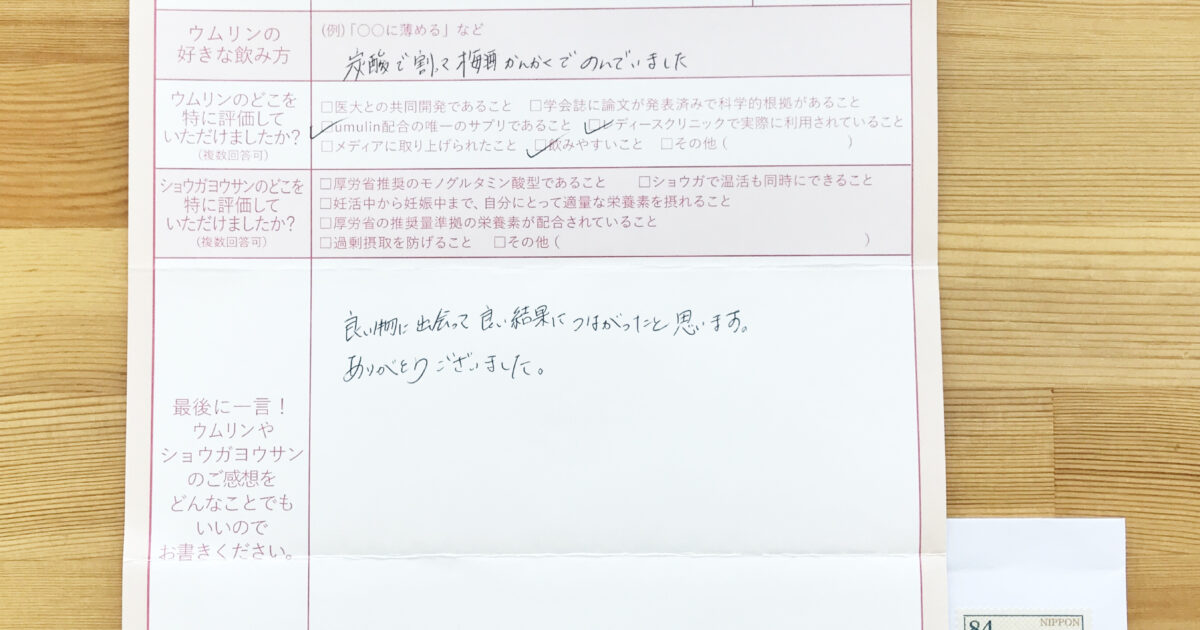 ウムリンの
好きな飲み方
(例)「〇〇に薄める」など
炭酸で割って梅酒かんかくでのんでいました
ウムリンのどこを
特に評価して
いただけましたか?
(複数回答可)
□医大との共同開発であること □学会誌に論文が発表済みで科学的根拠があること
□umulin配合の唯一のサプリであること □レディースクリニックで実際に利用されていること
□メディアに取り上げられたこと □飲みやすいこと □その他( )
ショウガヨウサンのどこを
特に評価して
いただけましたか?
(複数回答可)
□厚労省推奨のモノグルタミン酸型であること □ショウガで温活も同時にできること
□妊活中から妊娠中まで、自分にとって適量な栄養素を摂れること
□厚労省の推奨量準拠の栄養素が配合されていること
□過剰摂取を防げること □その他( )
最後に一言!
ウムリンや
ショウガヨウサン
のご感想を
どんなことでも
いいので
お書きください。
良い物に出会って良い結果につながったと思います。
ありがとうございました。
84
NIPPON